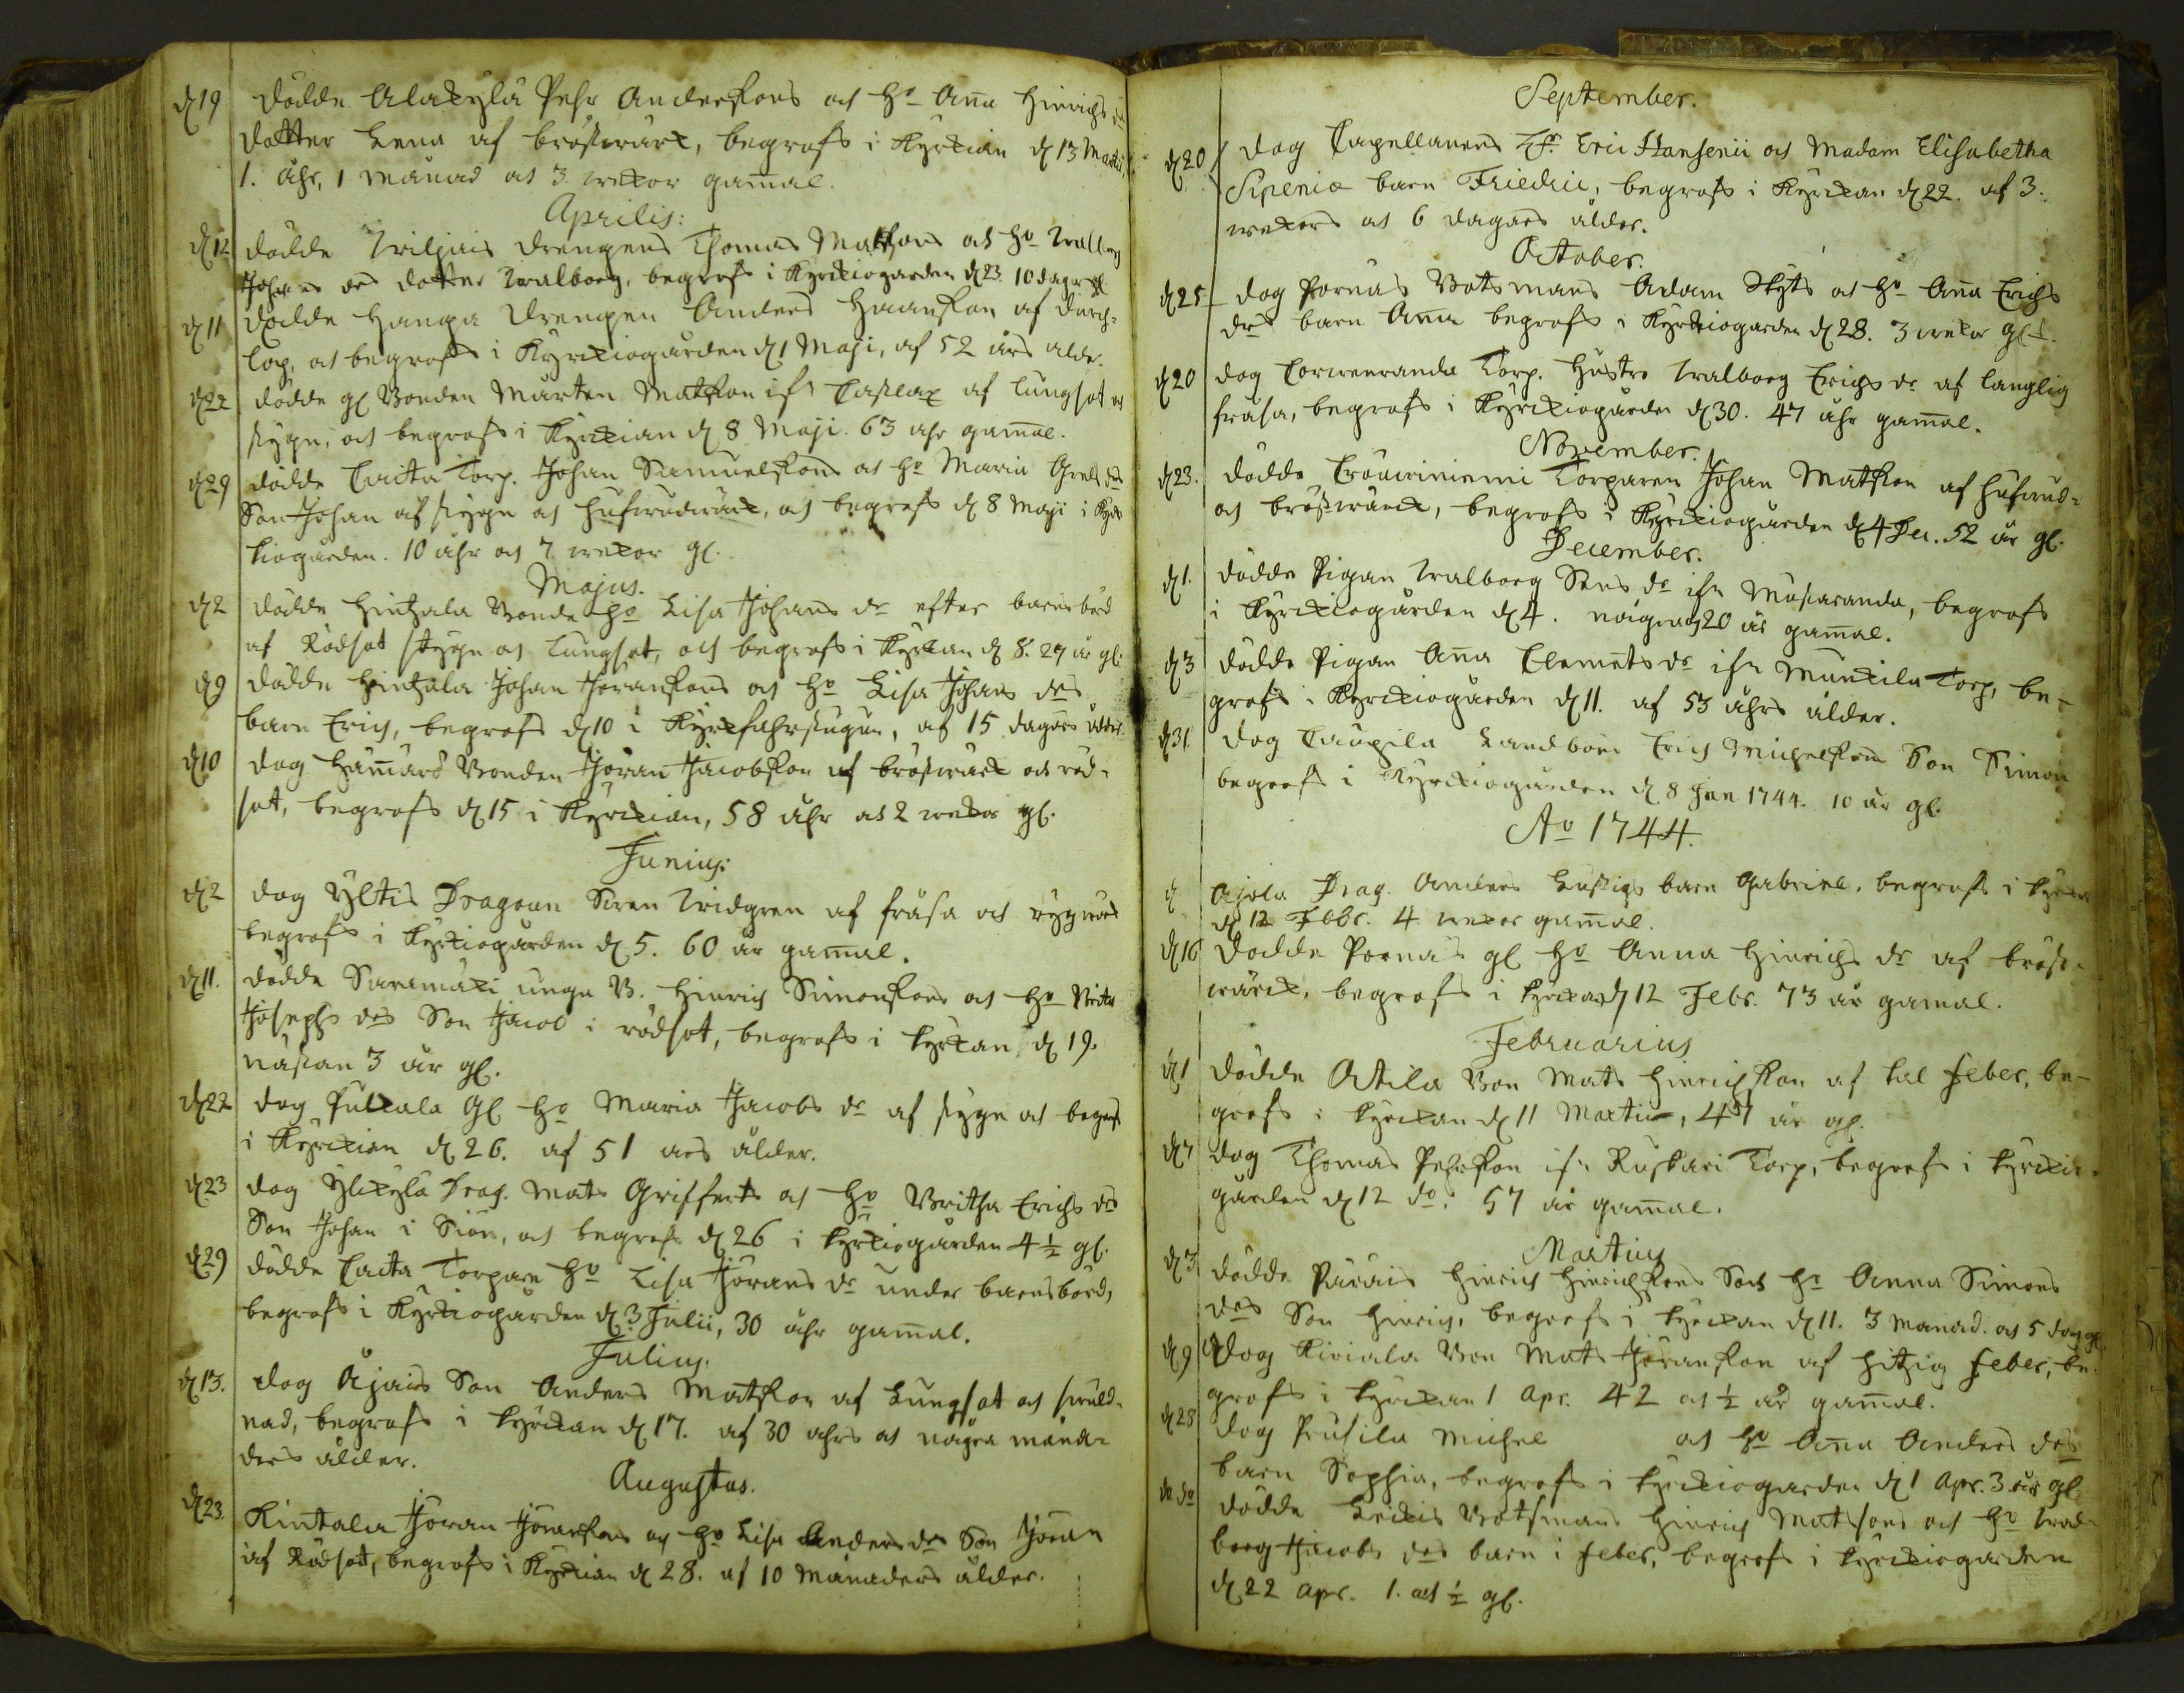 d 19 dödde Alakylä Pehr Andersons och ho Anna Hinrichs dr
dotter Lena af bröstwärk, begrofs i Kyrkian d 13 Martii,
1. åhr, 1 månad och 3 wekor gammal.
Aprilis:
d 12 dödde drengens Thomas Matsons och ho Walborg
Johans drs dotter Walborg, begrofs i Kyrkiogården d 23. 10 dagar gl.
d 11 dödde Hanga drengen Anders Hansson af durch-
lop, och begrofs i Kyrkiogården d 1 Maji, af 52 års ålder.
d 22 dödde gl Bonden Mårten Matson ifr af lungsot och
stygn, och begrofs i Kyrkian d 8 Maji. 63 åhr gammal.
d 29 dödde Caita Torp. Johan Samuelsons och ho Maria Grels drs
Son Johan af stygn och hufwudwärk, och begrofs d 8 Maji i Kyr-
kiogården. 10 åhr och 7 wekor gl.
Majus.
d 2 dödde Hintzala Bonde ho Lisa Johans dr efter barnsbörd
af Rödsot stygn och lungsot, och begrofs i Kyrkan d 8. 29 år gl.
d 9 dödde Hintzala Johan Jöransons och ho Lisa Johans drs
barn Erich, begrofs d 10 i Kyrkfahrstugun, af 15 dagars ålder.
d 10 dog Hammars Bonden Jöran Jacobson af bröstwärk och röd-
sot, begrofs d 15 i Kyrkian, 58 åhr och 2 wekor gl.
Junius:
d 2 dog Yltis Dragoun Sven Widgren af fråsa och ryggwärk
begrofs i Kyrkiogården d 5. 60 år gammal.
d 11. dödde Saramäki unga B. Hinrich Simonsons och ho Brita
Josephs drs Son Jacob i rödsot, begrofs i Kyrkan d 19.
nästan 3 år gl.
d 22 dog Pukkala gl ho Maria Jacobs dr af stygn och begrofs
i Kyrkian d 26. af 51 års ålder.
d 23 dog Ylikylä Drag. Mats Grifferts och ho Britha Erichs drs
Son Johan i Siön, och begrofs d 26 i Kyrkiogården 4 ½ gl.
d 29 dödde Caita Torpare ho Lisa Jörans dr under barnsbörd,
begrofs i Kyrkiogården d 3 Julii, 30 åhr gammal.
Julius.
d 13. dog Ajais Son Anders Matson af Lungsot och swuld-
nad, begrofs i Kyrkan d 17. af 30 åhrs och några måna-
ders ålder.
Augustus.
d 23. Kintala Jöran Jöransons och ho Lisa Anders drs Son Jöran
af Rödsot, begrofs i Kyrkian d 28. af 10 månaders ålder.
September.
d 20 dog Capellanens Hr Erici Hansenii och Madam Elisabetha
Sipeniæ barn Friedric, begrofs i Kyrkan d 22. af 3.
wekors och 6 dagars ålder.
October.
d 25 dog Pornäs Botsmans Adam Skyts och ho Anna Erichs
drs barn Anna begrofs i Kyrkiogården d 28. 3 wekor gl.
d 20 dog Corwenranda Torp. hustro Walborg Erichs dr af langlig
fråsa, begrofs i Kyrkiogården d 30. 47 åhr gammal.
November.
d 23. dödde Torparen Johan Matson af hufwud-
och bröstwärck, begrofs i Kyrkiogården d 4 Dec. 52 år gl.
December.
d 1. dödde Pigan Walborg Sons dr ifr Mustaranda, begrofs
i Kyrkiogården d 4. några 20 år gammal.
d 3 dödde Pigan Anna Clemets dr ifr Munkila Torp, be-
grofs i Kyrkiogården d 11. af 53 åhrs ålder.
d 31 dog Caupila Landbonde Erich Michelsons Son Simon
begrofs i Kyrkiogården d 8 Jan 1744. 10 år gl.
Ao 1744.
d Ajola Drag. Anders Lustigs barn Gabriel, begrofs i Kyrkan
d 12 Febr. 4 wekor gammal.
d 16 dödde Pornäs gl ho Anna Hinrichs dr af bröst-
wärck, begrofs i Kyrkan d 12 Febr. 73 år gamal.
Februarius
d 1 dödde Attila Bon Mats Hinrichson af kal feber, be-
grofs i Kyrkan d 11 Martii, 47 år gl.
d 7 dog Thomas Pehrson ifr Ruskari Torp, begrofs i Kyrkio-
gården d 12 do. 57 år gammal.
Martius
d 3 dödde Pärais Hinrich Hinrichsons och ho Anna Simons
drs Son Hinrich, begrofs i Kyrkan d 11. 3 månad. och 5 dag gl
d 9 dog Kiriala Bon Mats Jöranson af hitzig feber, be-
grofs i Kyrkan 1 Apr. 42 och ½ år gammal.
d 28 dog Prusila Michel och ho Anna Anders drs
barn Sophia, begrofs i Kyrkiogården d 1 Apr. 3 år gl.
de do dödde Leikis Botsmans Hinrich Matssons och ho Wal-
borg Jacobs drs barn i feber, begrofs i Kyrkiogården
d 22 Apr. 1. och ½ gl.